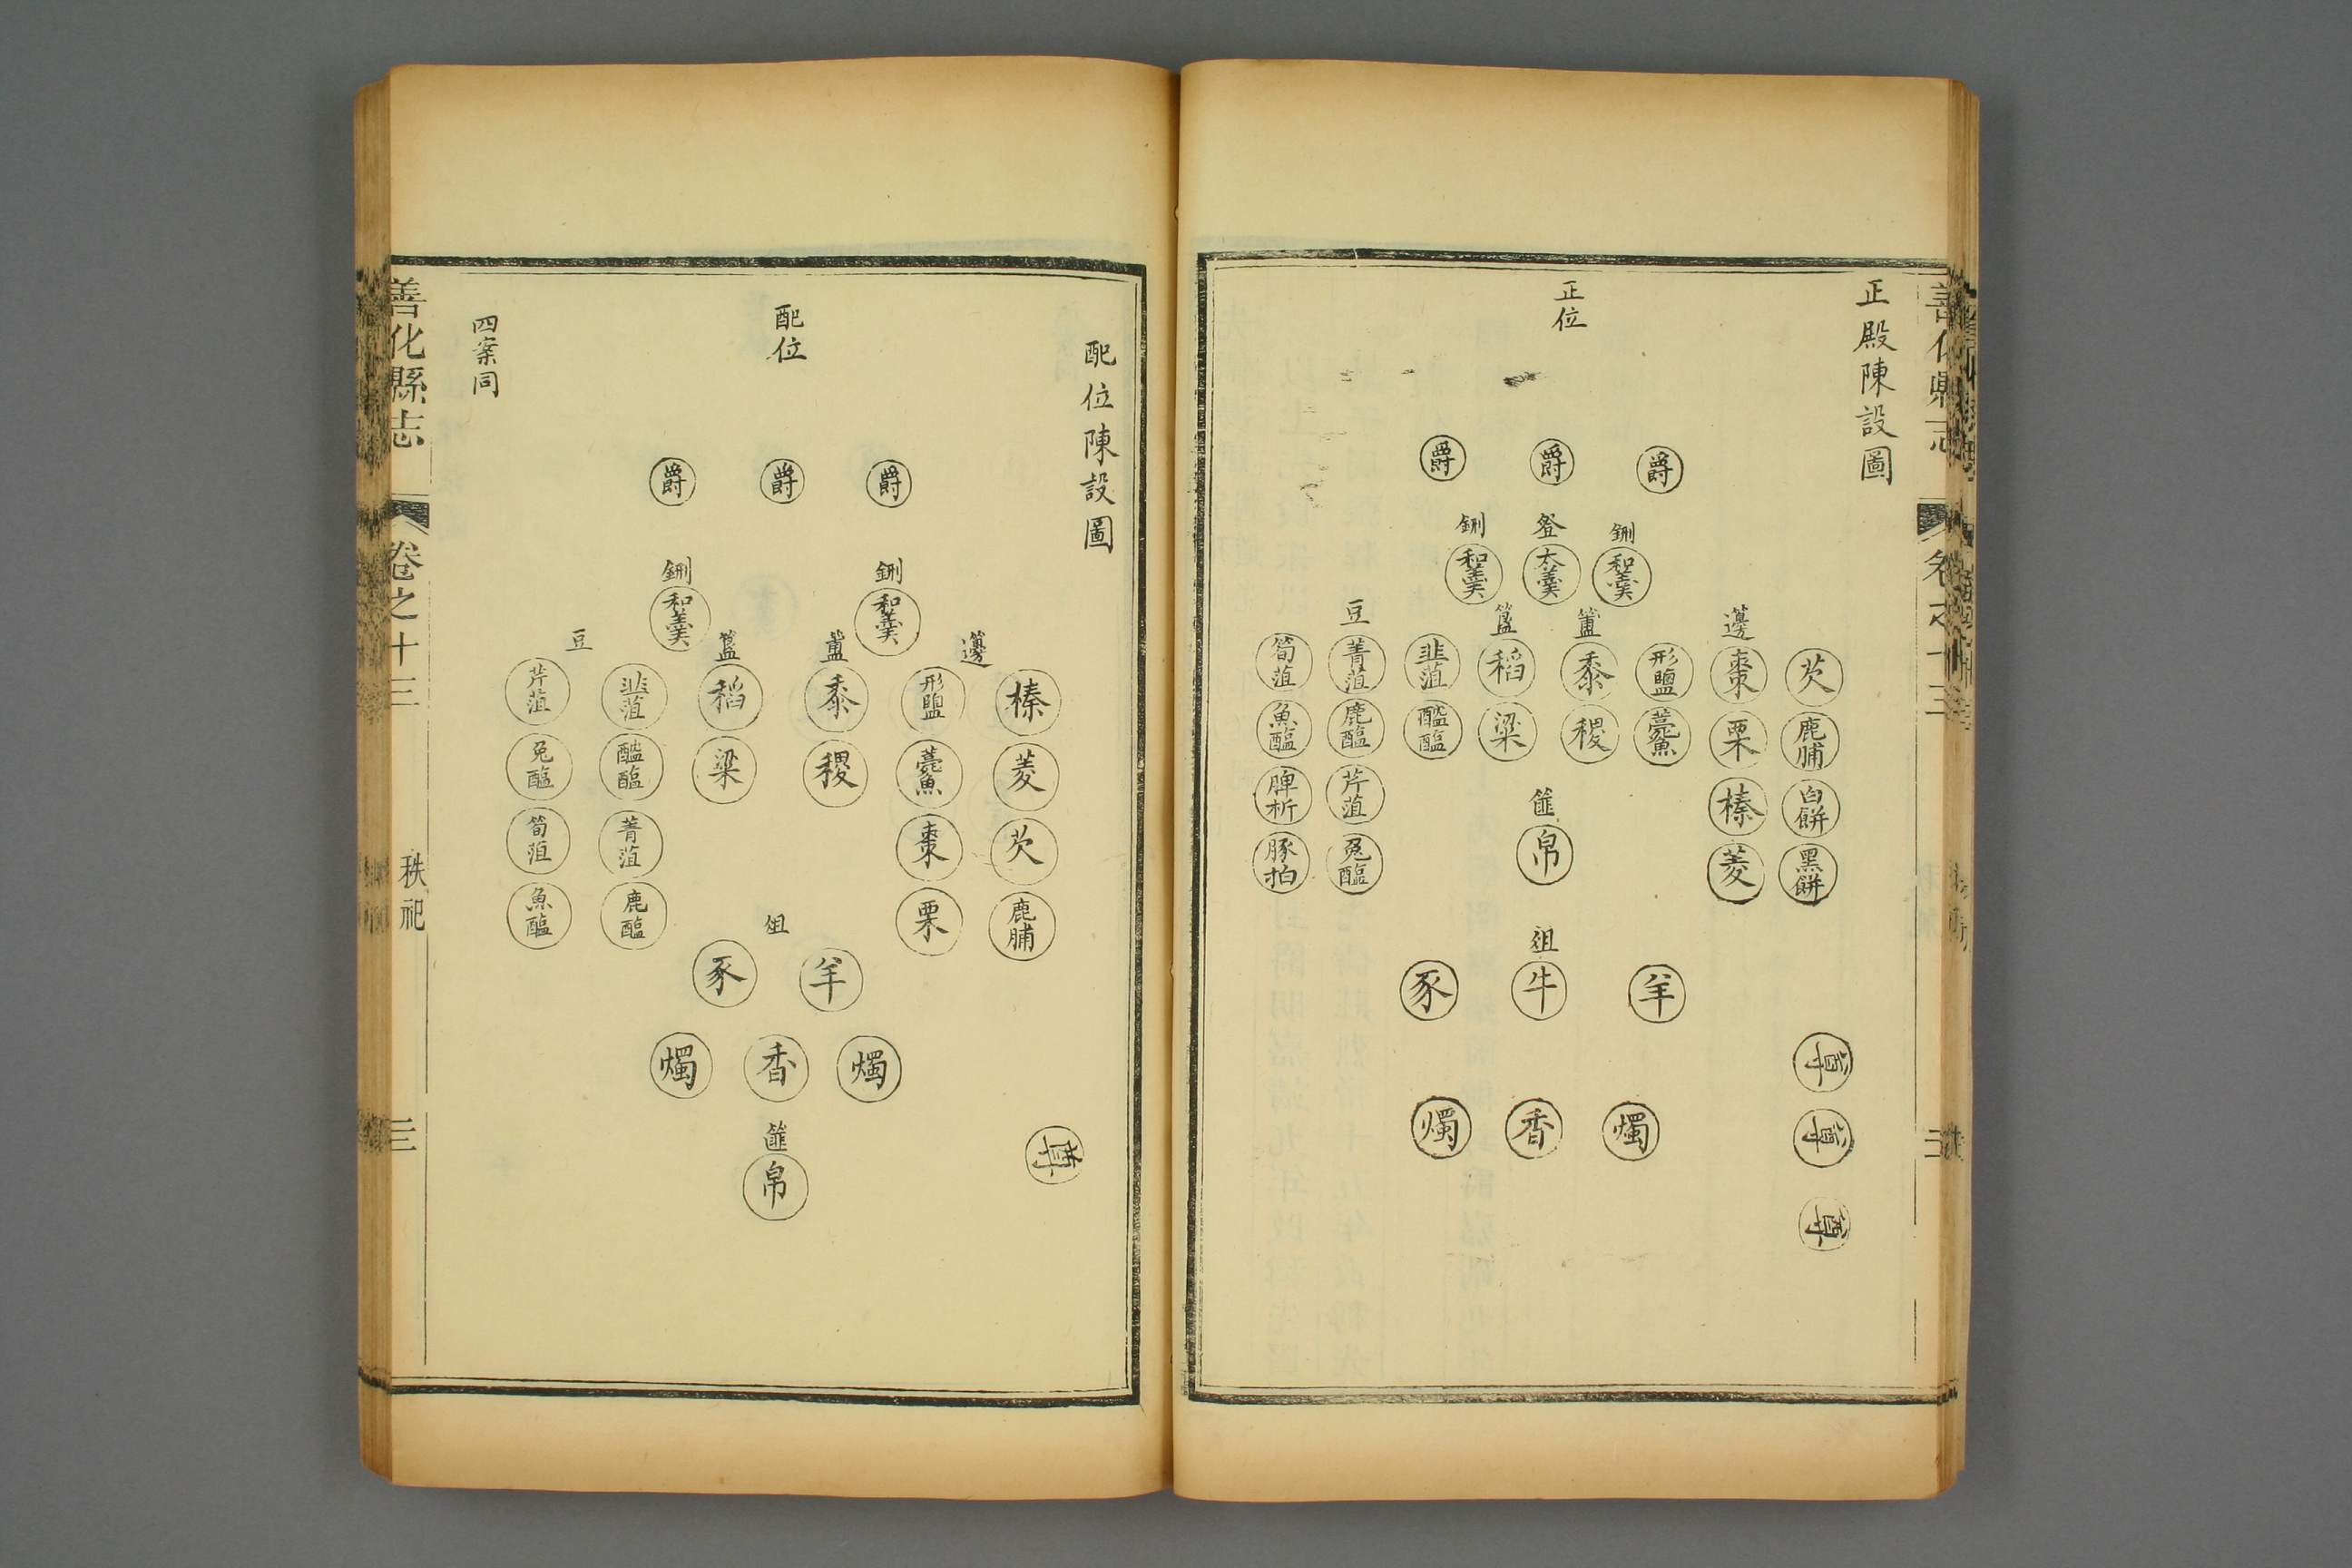 正殿陳設圖
正位
爵 爵 爵
鉶 登 鉶
和羹 太羹 和羹
豆 簠 簠 籩
筍菹 菁菹 韭菹 稻 黍 形鹽 棗 芡
魚醢 鹿醢 醓醢 粱 稷 薧魚 栗 鹿脯
脾析 芹菹 榛 白餅
豚拍 兔醢 菱 黑餅
篚
帛
俎
豕 牛 羊
燭 香 燭
尊
尊
尊
配位陳設圖
配位
四案同
爵 爵 爵
鉶 鉶
和羹 和羹
豆 簠 簠 籩
芹菹 韭菹 稻 黍 形鹽 榛
兔醢 醓醢 粱 稷 薧魚 菱
筍菹 菁菹 棗 芡
魚醢 鹿醢 栗 鹿脯
俎
豕 羊
燭 香 燭
篚
帛
尊
善化縣志
卷之十三
秩祀
三